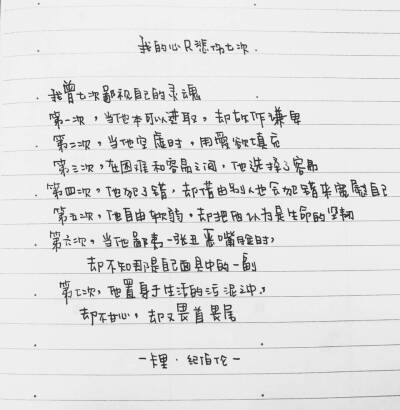 我的心只悲伤七次.
. 我曾七次鄙视自己的灵魂
第一次, 当他本可以进取, 却故作谦卑
. 第二次, 当他空虚时, 用爱欲填充
第三次, 在困难和容易之间, 他选择了容易
. 第四次, 他犯了错, 却借由别人也会犯错来宽慰自己
第五次, 他自由软弱, 却把他认为是生命的坚韧
. 第六次, 当他鄙夷一张丑恶嘴脸时,
却不知那是自己面具中的一副
. 第七次, 他置身于生活的污泥之中,
却不甘心, 却又畏首畏尾
—卡里·纪伯伦—